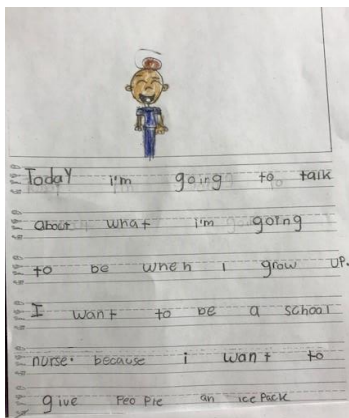 Today i'm going to talk
about what i'm going
to be when I grow up.
I want to be a school
nurse. because i want to
give PeoPle an ice Pack